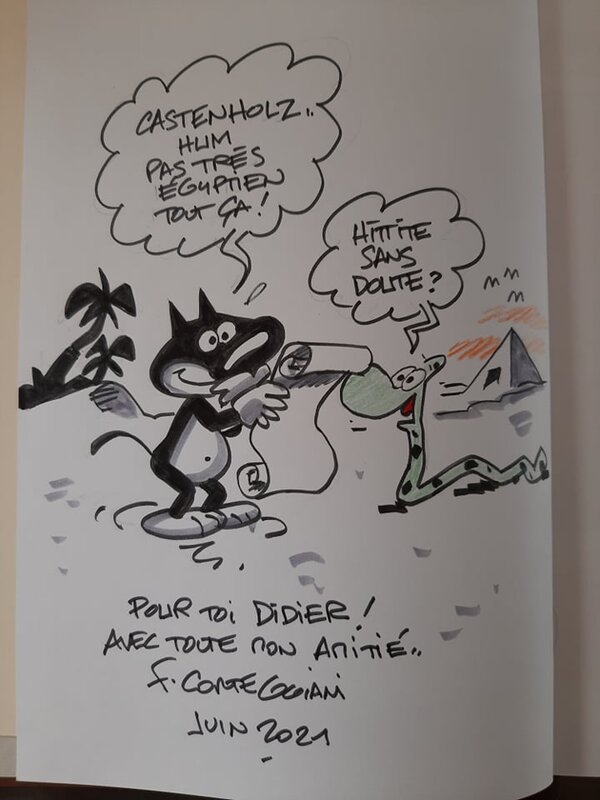 CASTENHOLZ..
HUM
PAS TRÉS
ÉGYPTIEN
TOUT ÇA!
HITTITE
SANS
DOUTE?
POUR TOI DIDIER!
AVEC TOUTE MON AMITIÉ..
F. CORTEGGIANI
JUIN 2021